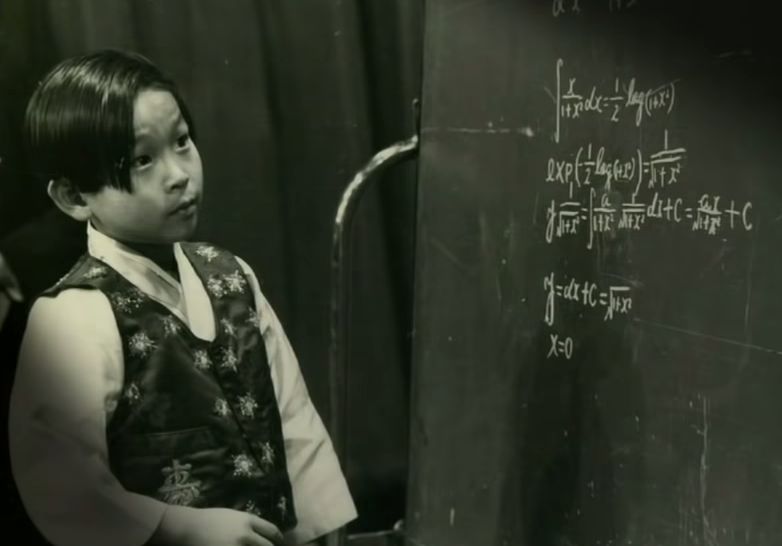 ∫ x/(1+x²) dx = 1/2 log(1+x²)
exp(-1/2 log(1+x²)) = 1/√(1+x²)
y 1/√(1+x²) = ∫ a/(1+x²) 1/√(1+x²) dx + C = ax/√(1+x²) + C
y = ax + C √(1+x²)
x=0
壽